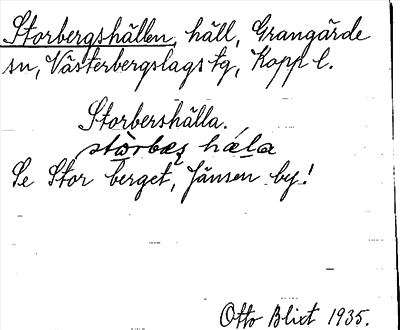 Storbergshällen, häll, Grangärde
sn, Västerbergslags tg, Kopp l.
Storbershälla.
Se Stor berget, Jänsen by!
Otto Blixt 1935.